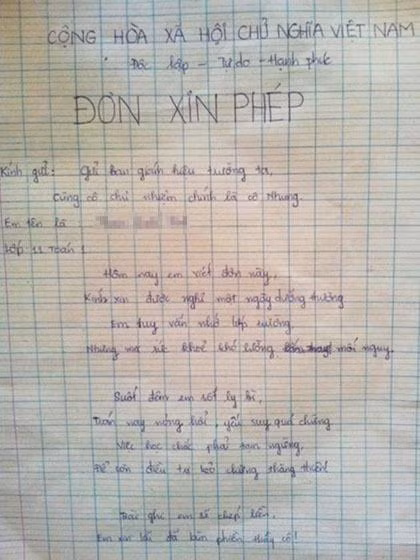 CỘNG HÒA XÃ HỘI CHỦ NGHĨA VIỆT NAM
Độc lập - Tự do - Hạnh phúc
ĐƠN XIN PHÉP
Kính gửi: Gửi ban giám hiệu trường ta,
Cùng cô chủ nhiệm chính là cô Nhung.
Em tên là
Lớp 11 Toán 1
Hôm nay em viết đơn này,
Kính xin được nghỉ một ngày dưỡng thương
Em tuy vẫn nhớ lớp trường,
Nhưng mà sức khoẻ khó lường mới nguy.
Suốt đêm em sốt ly bì,
Trán nay nóng hổi, yếu suy quá chừng
Việc học chắc phải tạm ngừng,
Để còn điều trị kẻo chừng thăng thiên!
Bài ghi em sẽ chép liền,
Em xin lỗi đã làm phiền thầy cô!